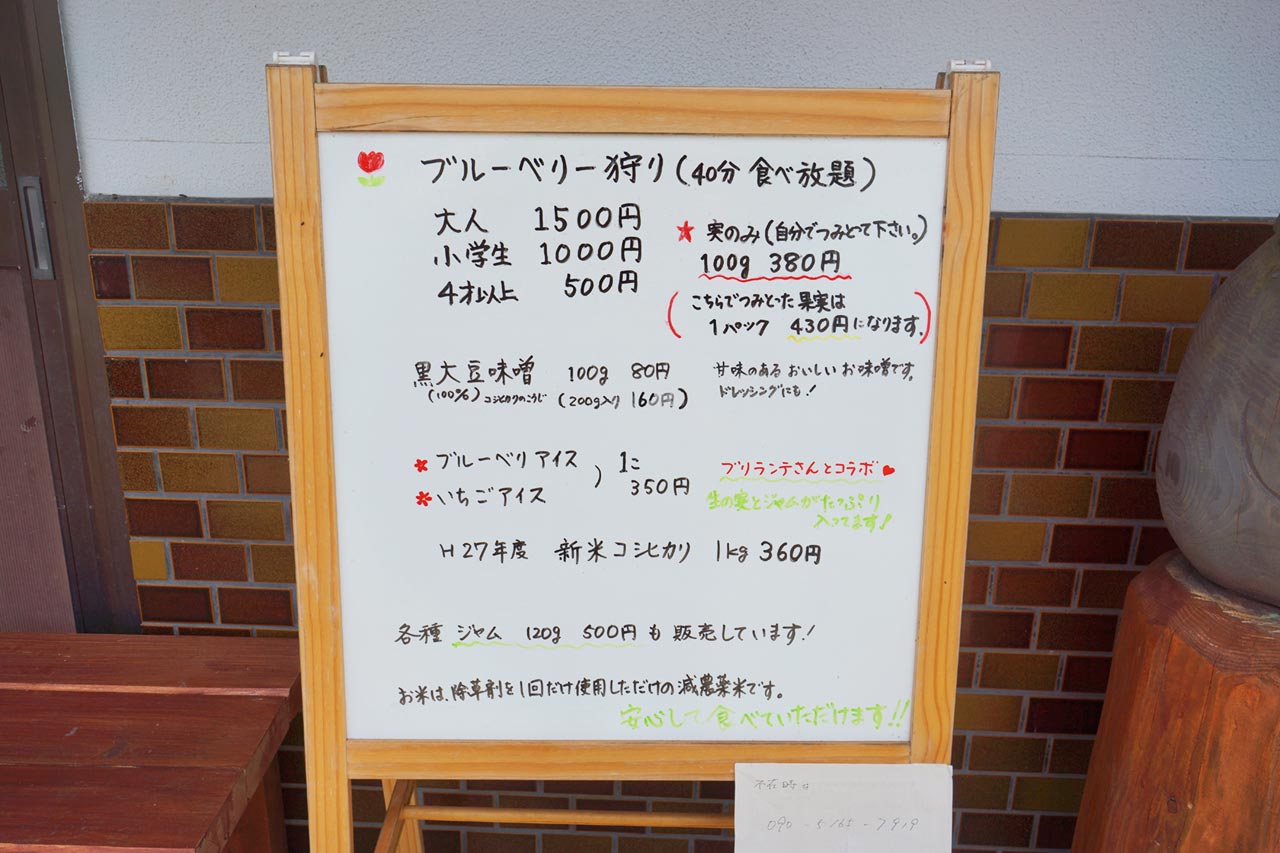 ブルーベリー狩り(40分 食べ放題)
大人 1500円
小学生 1000円
4才以上 500円
★ 実のみ(自分でつみとって下さい。)
100g 380円
(こちらでつみとった果実は
1パック 430円になります。)
黒大豆味噌 100g 80円
(100%)コシヒカリのこうじ (200g入り 160円)
甘味のある おいしい お味噌です。
ドレッシングにも!
ブルーベリアイス
いちごアイス
) 1こ
350円
ブリランテさんとコラボ♥
生の実とジャムがたっぷり
入ってます!
H27年度 新米コシヒカリ 1kg 360円
各種 ジャム 120g 500円 も 販売しています!
お米は、除草剤を1回だけ使用しただけの減農薬米です。
安心して食べていただけます!!
不在時は
090-5165-7919